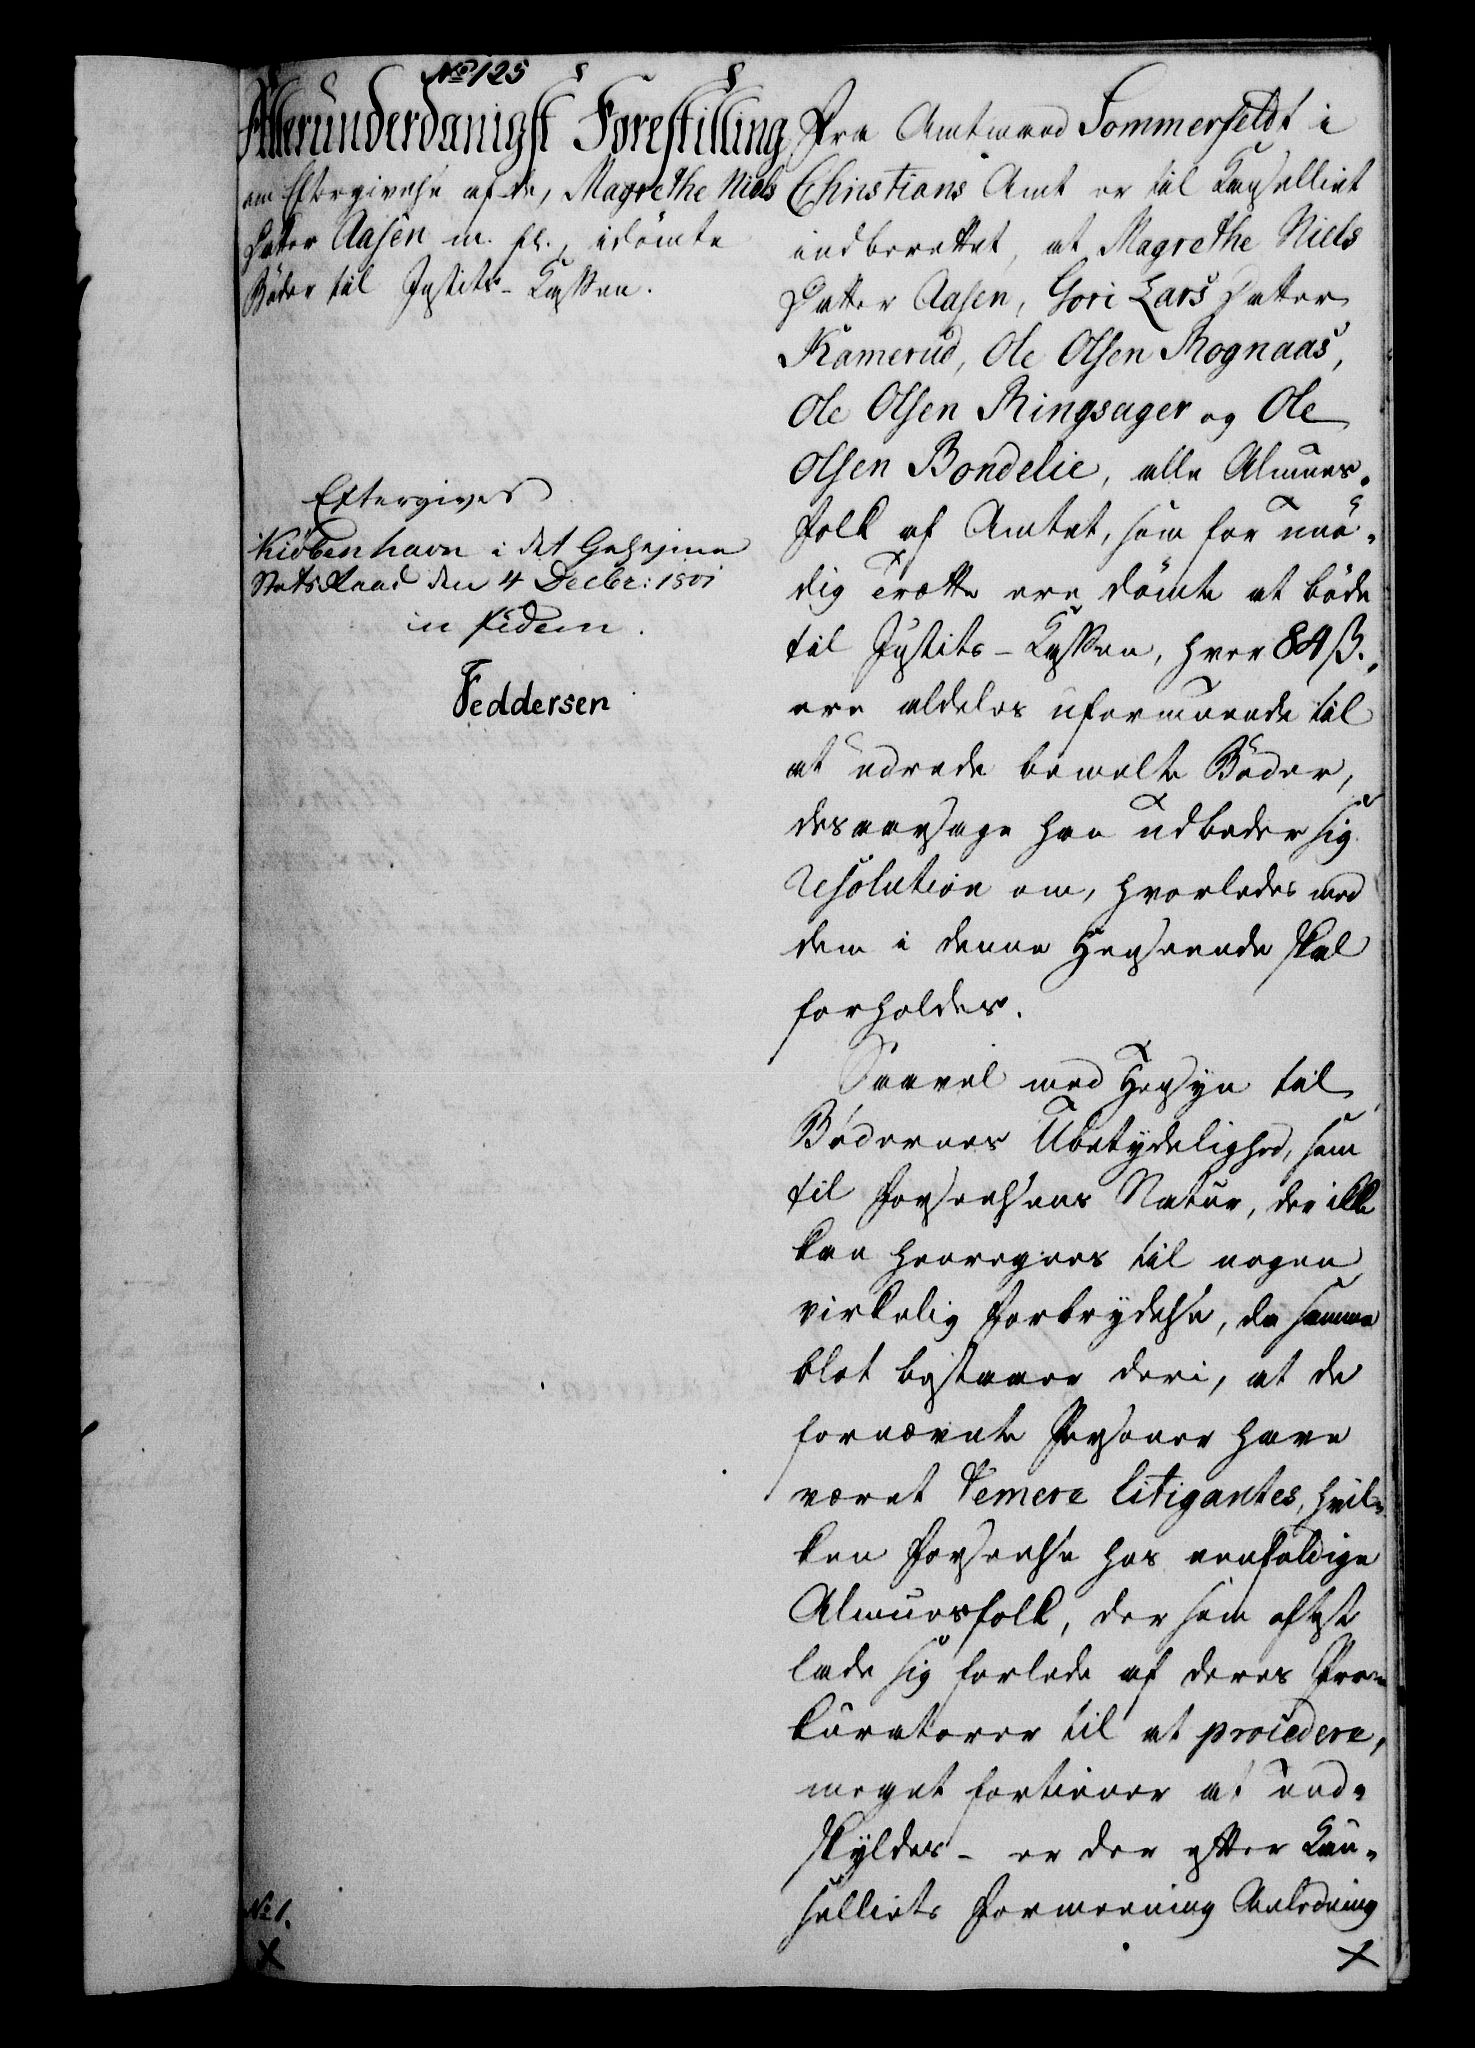 No 125
Allerunderdanigst Forestilling
om Eftergivelse af de, Magrethe Niels
Datter Aasen m. fl., idömte
Böder til Justits-Kassen.
Eftergives
Kiöbenhavn i det Geheime
StatsRaad den 4 Decbr: 1801
in fidem.
Feddersen
No 1.
Fra Amtmand Sommerfeldt i
Christians Amt er til Cancelliet
indberettet, at Magrethe Niels
Datter Aasen, Gori Lars Datter
Kamerud, Ole Olsen Rognaas,
Ole Olsen Ringsager og Ole
Olsen Bondelie, alle Almues-
folk af Amtet, som for unö-
dig Trætte ere dömte at böde
til Justits-Kassen, hver 84 ß.,
ere aldeles uformuende til
at udrede bemelte Böder,
desaarsage han udbeder sig
Resolution om, hvorledes med
dem i denne Henseende skal
forholdes.
Saavel med Hensyn til
Bödernes Ubetydelighed, som
til Forseelsens Natur, der ikke
kan henregnes til nogen
virkelig Forbrydelse, da samme
blot bestaaer deri, at de
fornævnte Personer have
været temere litigantes, hvil-
ken Forseelse hos eenfoldige
Almuesfolk, der som oftest
lade sig forlede af deres Pro-
curatorer til at procedere,
meget fortiener at und-
skyldes - er der efter Can-
celliets Formeening Anledning